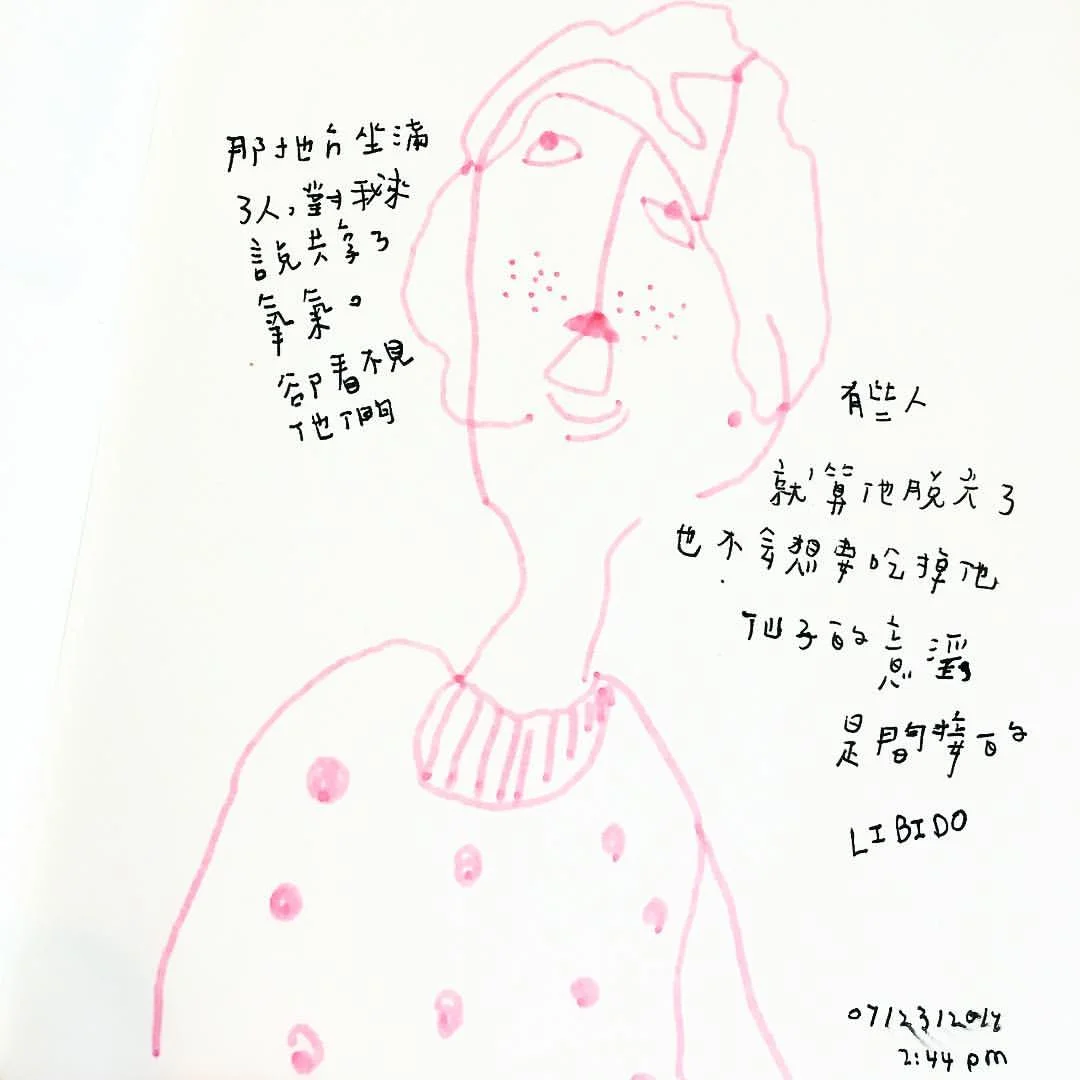 那地方坐滿
了人，對我來
說共享了
氧氣。
卻看不見
他們
有些人
就算他脫光了
也不會想要吃掉他
他子的意淫
是間接的
LIBIDO
07/23/2018
2:44 pm